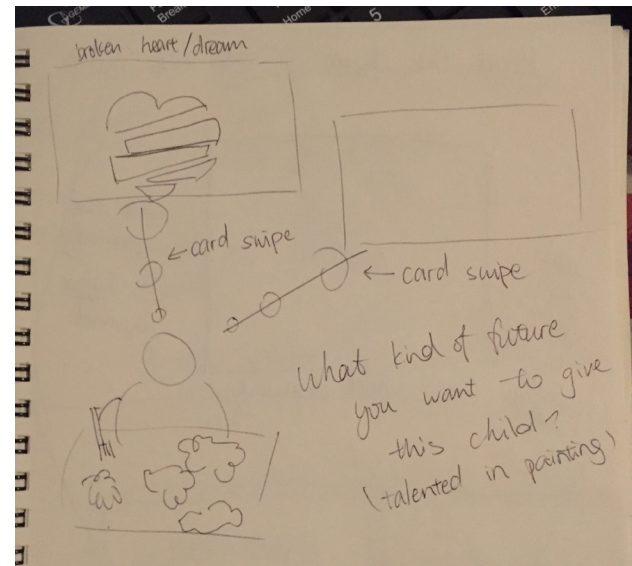 broken heart/dream
← card swipe
← card swipe
What kind of future
you want to give
this child?
(talented in painting)